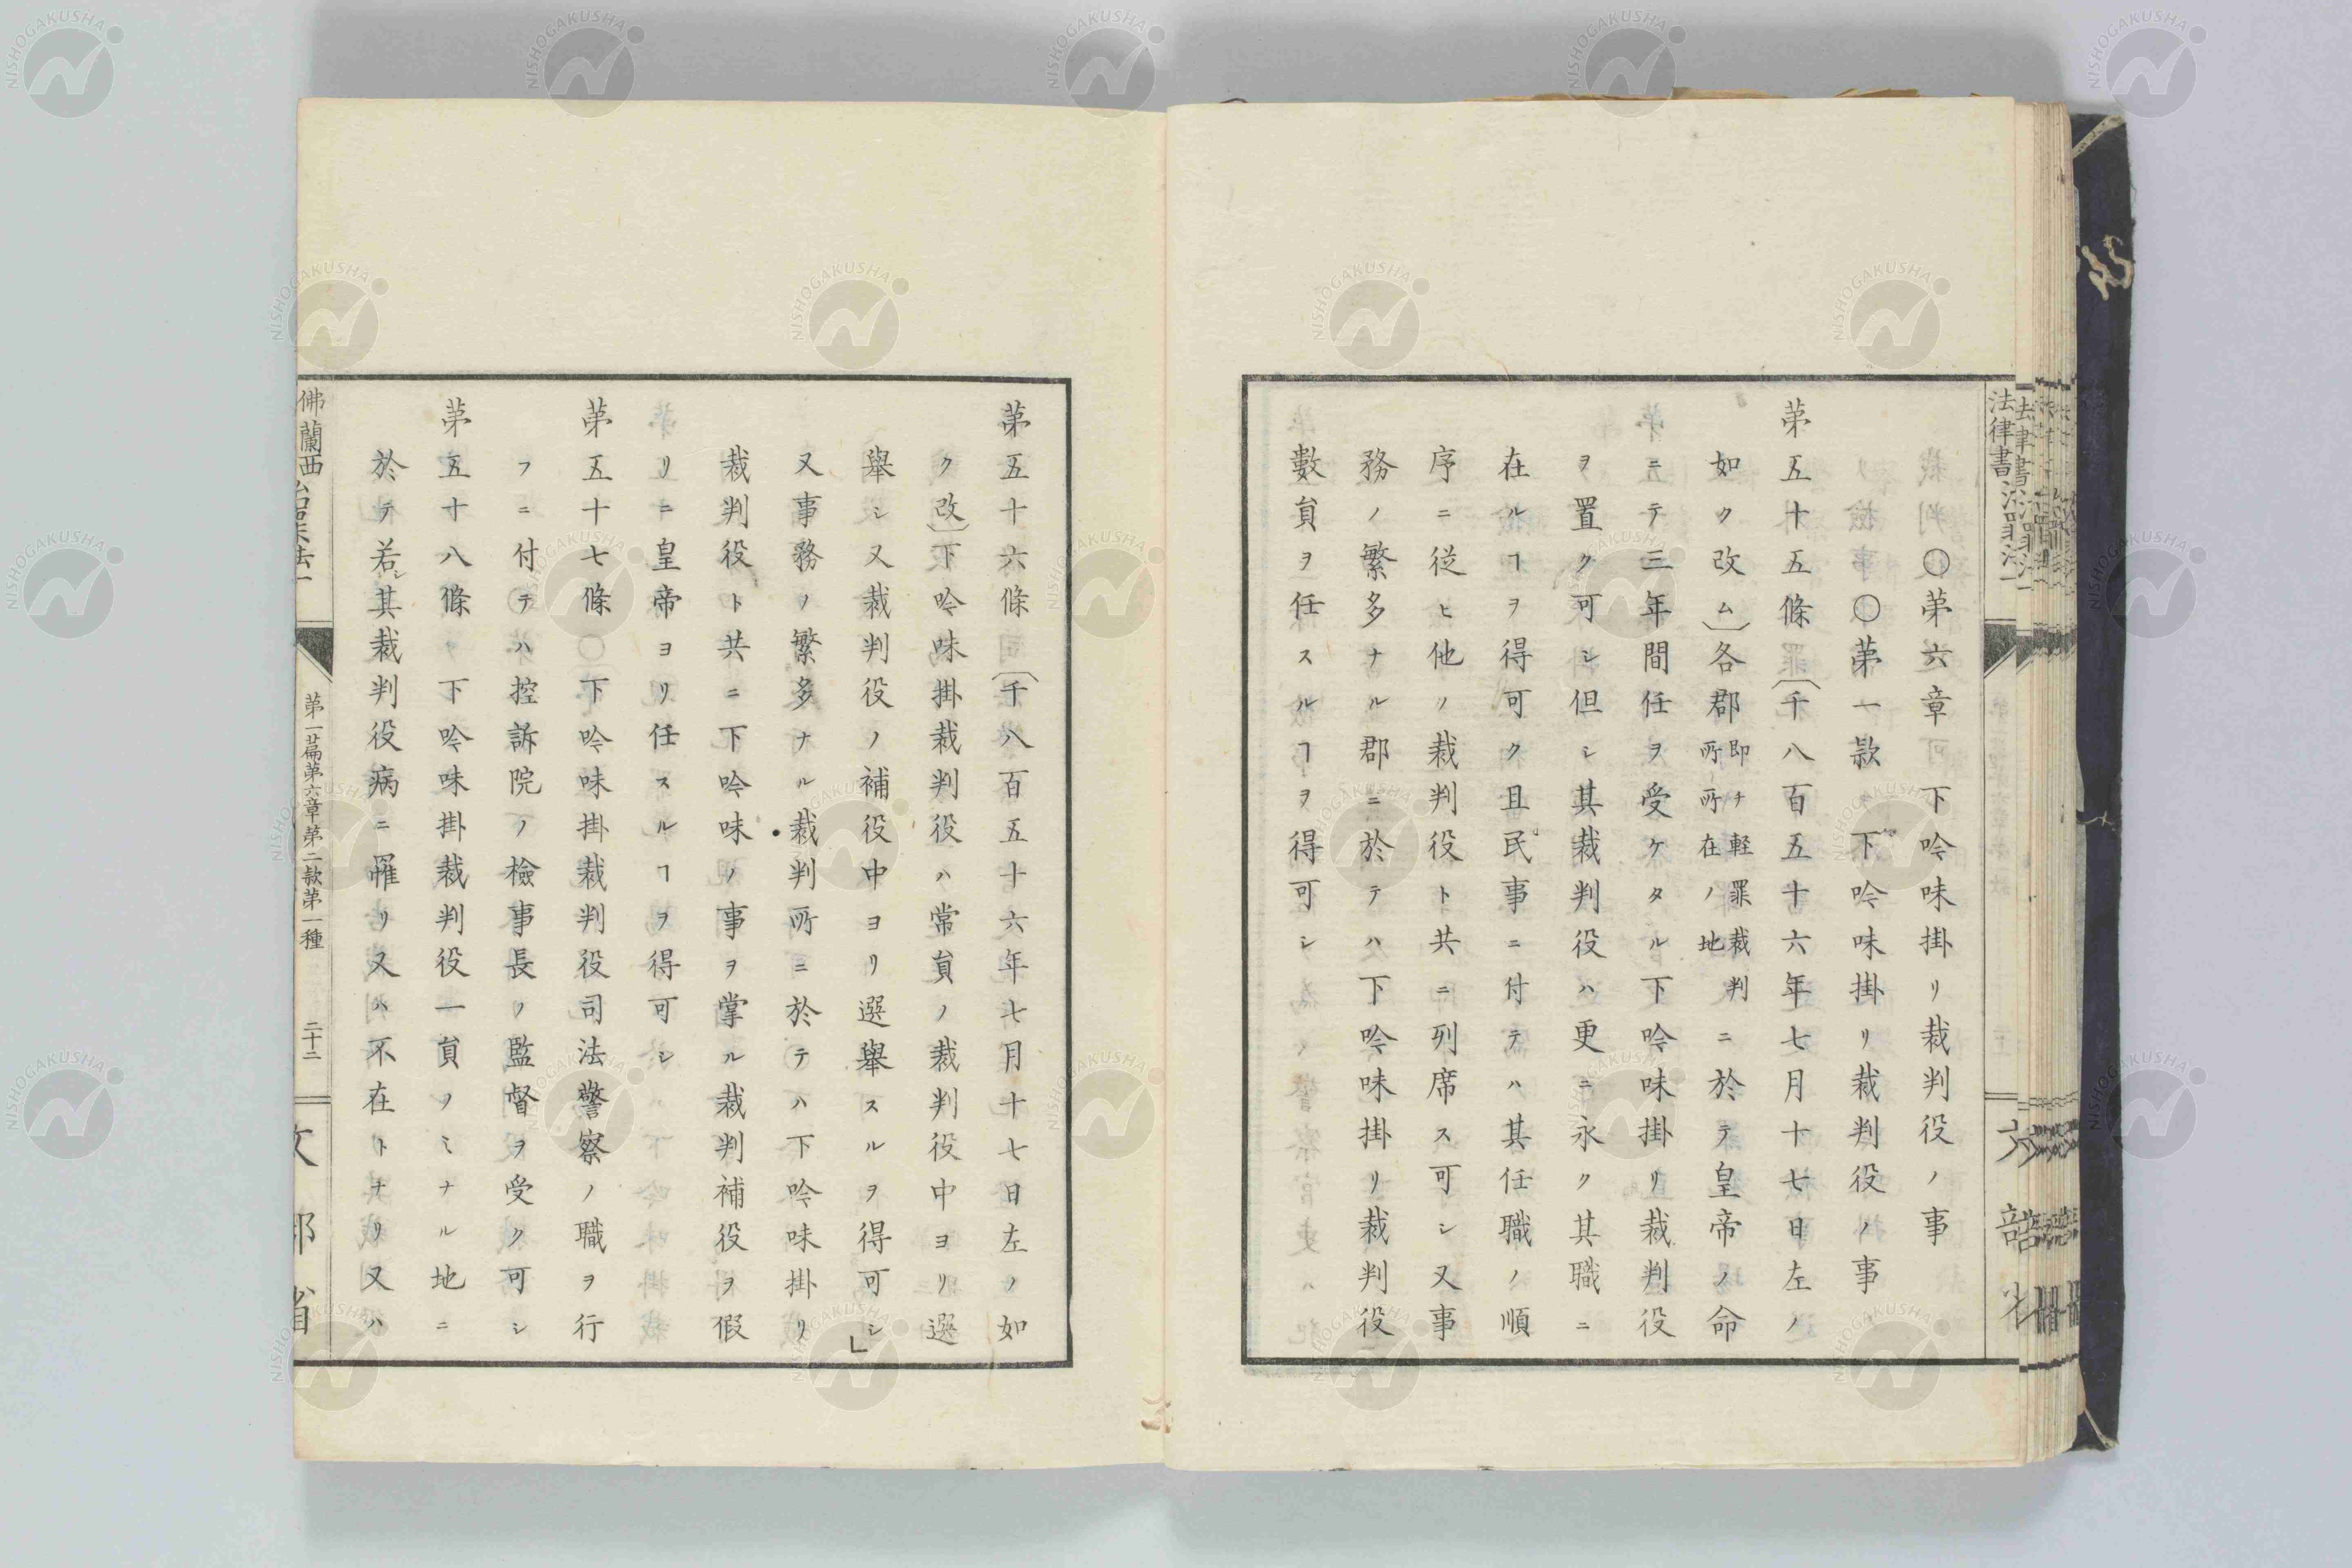 ○第六章　下吟味掛リ裁判役ノ事
○第一款　下吟味掛リ裁判役ノ事
第五十五條〔千八百五十六年七月十七日左ノ
如ク改ム〕各郡即チ輕罪裁判所所在ノ地ニ於テ皇帝ノ命
ニテ三年間任ヲ受ケタル下吟味掛リ裁判役
ヲ置ク可シ但シ其裁判役ハ更ニ永ク其職ニ
在ルヿヲ得可ク且民事ニ付テハ其任職ノ順
序ニ從ヒ他ノ裁判役ト共ニ列席ス可シ又事
務ノ繁多ナル郡ニ於テハ下吟味掛リ裁判役
數員ヲ任スルヿヲ得可シ
第五十六條〔千八百五十六年七月十七日左ノ如
ク改〕下吟味掛裁判役ハ常員ノ裁判役中ヨリ選
擧シ又裁判役ノ補役中ヨリ選擧スルヲ得可シ
又事務ノ繁多ナル裁判所ニ於テハ下吟味掛リ
裁判役ト共ニ下吟味ノ事ヲ掌ル裁判補役ヲ假
リニ皇帝ヨリ任スルヿヲ得可シ
第五十七條　下吟味掛裁判役司法警察ノ職ヲ行
フニ付テハ控訴院ノ檢事長ノ監督ヲ受ク可シ
第五十八條　下吟味掛裁判役一員ノミナル地ニ
於テ若シ其裁判役病ニ罹リ又ハ不在トナリ又ハ
佛蘭西
第一篇第六章第二款第一種
二十二
文部省
法律書